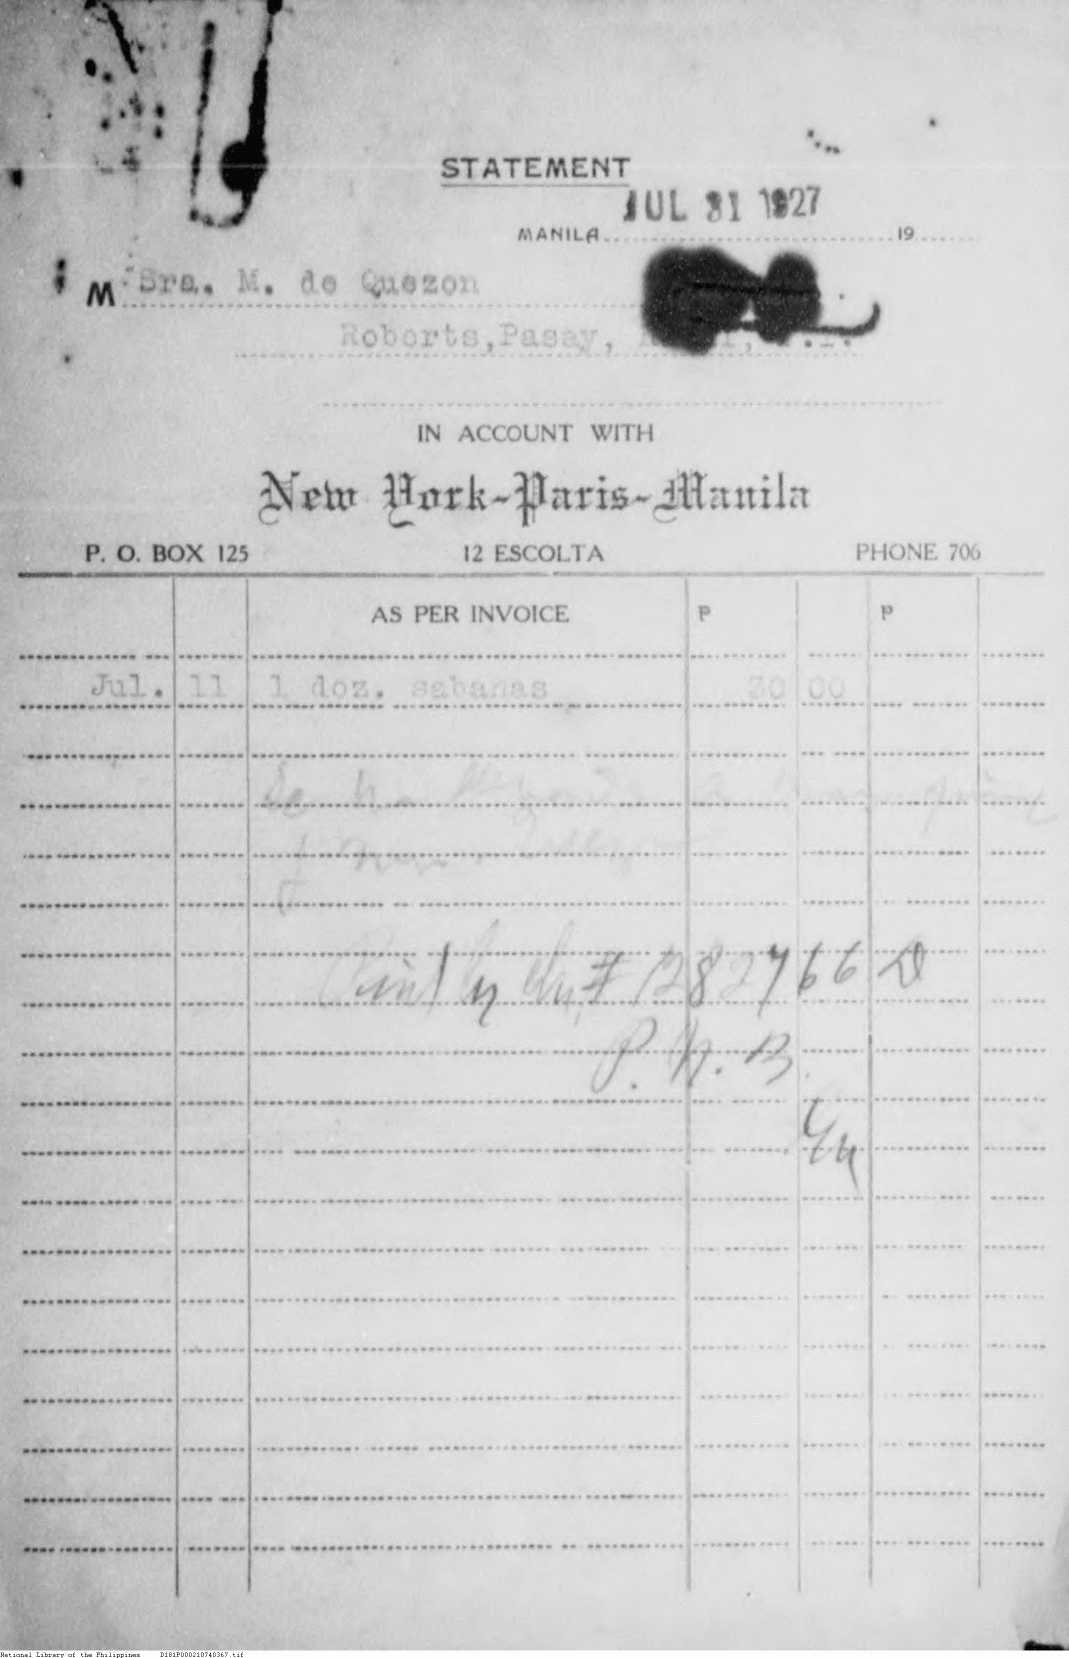 STATEMENT
JUL 31 1927
MANILA 19
M Sra. M. de Quezon
Roberts, Pasay,
IN ACCOUNT WITH
New York-Paris-Manila
P. O. BOX 125 12 ESCOLTA PHONE 706
AS PER INVOICE ₱ ₱
Jul. 11 1 doz. sabanas 30 00
# 282766 D
P. N. B.
National Library of the Philippines D181P000210740367.tif